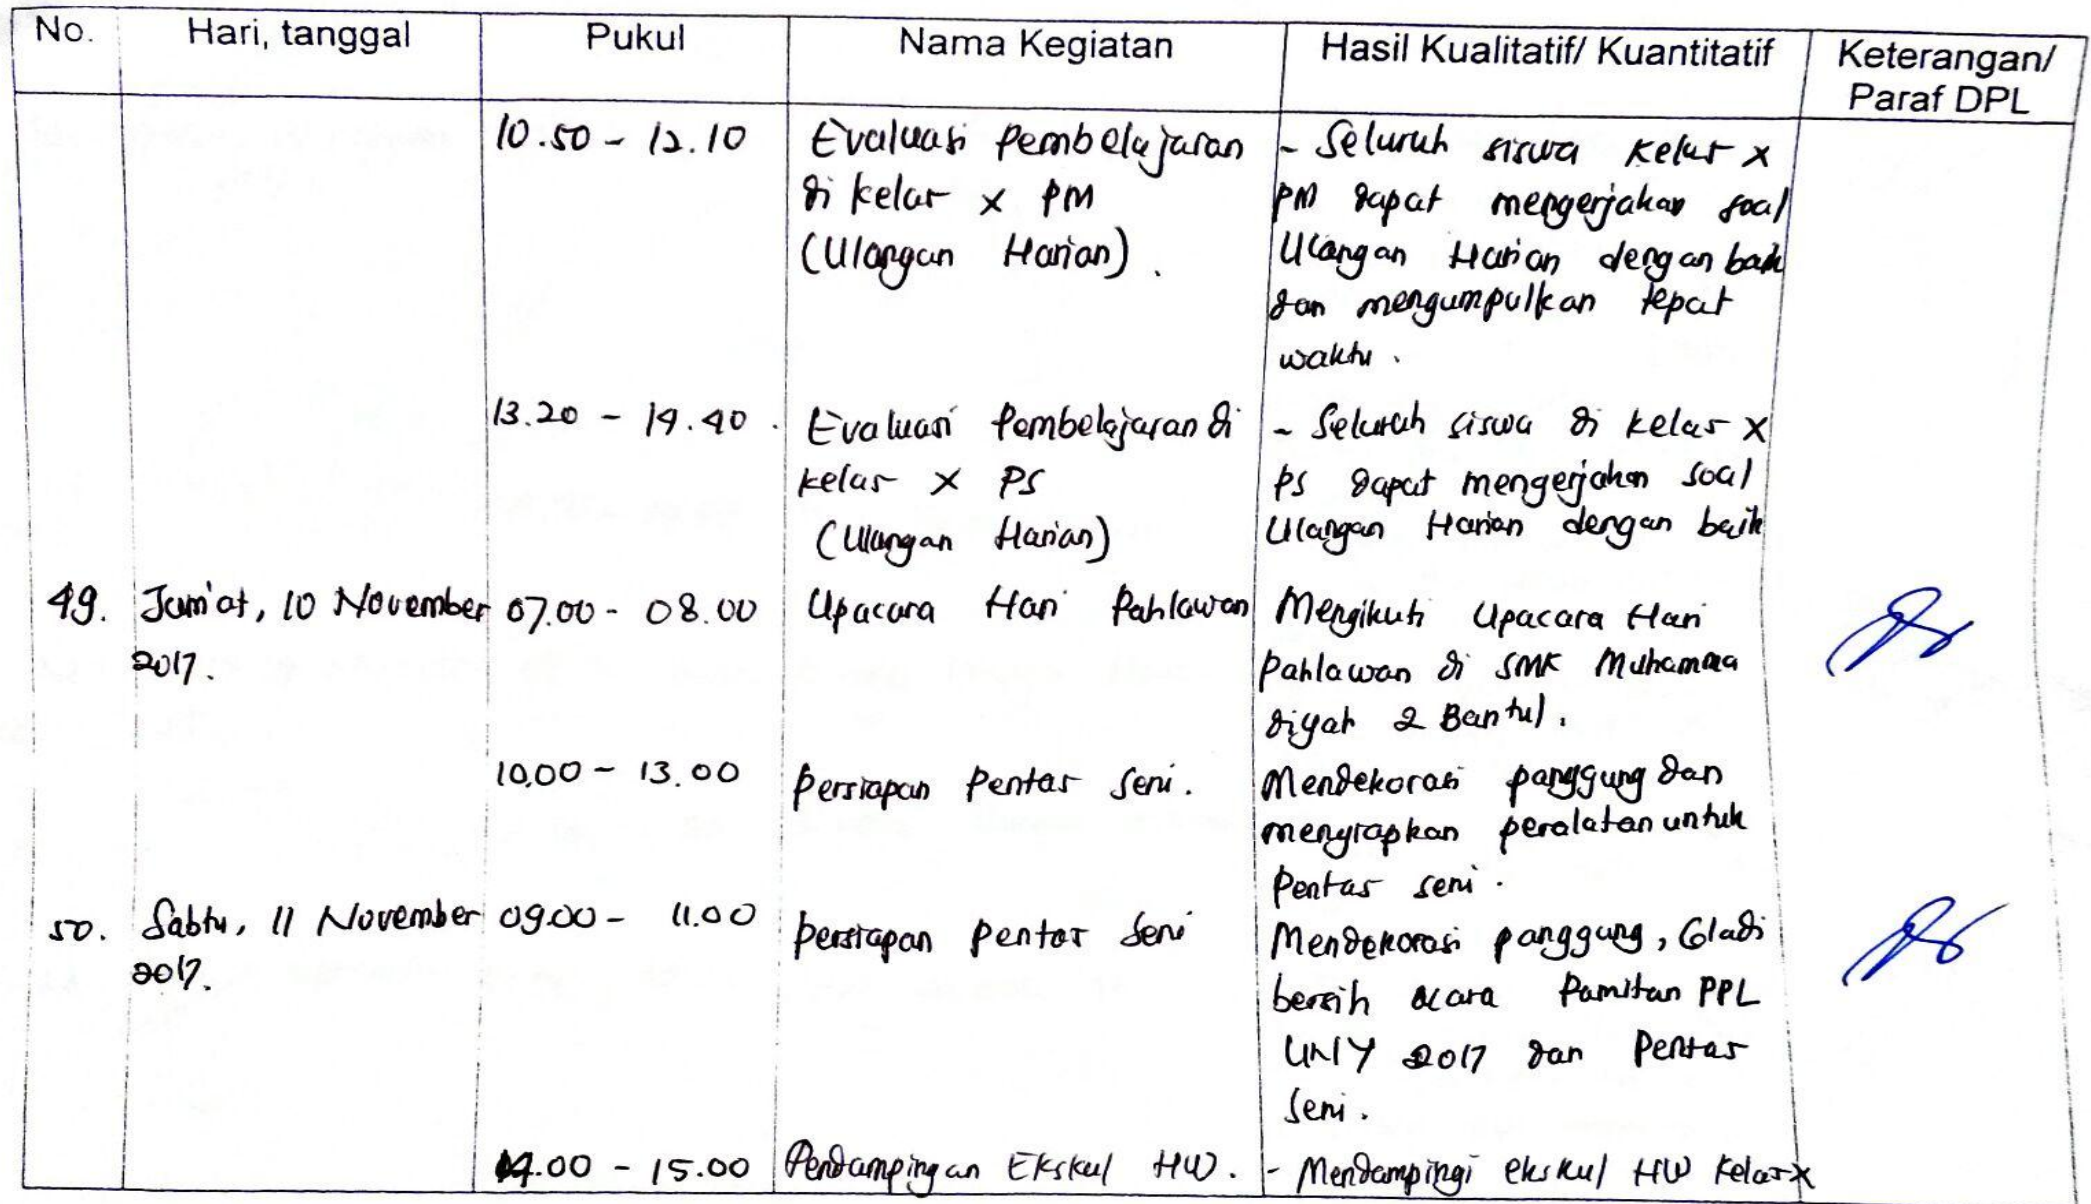 No. Hari, tanggal Pukul Nama Kegiatan Hasil Kualitatif/ Kuantitatif Keterangan/
Paraf DPL
10.50 - 12.10 Evaluasi Pembelajaran - Seluruh siswa kelas X
di kelas X PM PM dapat mengerjakan soal
(Ulangan Harian). Ulangan Harian dengan baik
dan mengumpulkan tepat
waktu.
13.20 - 14.40. Evaluasi Pembelajaran di - Seluruh siswa di kelas X
kelas X PS PS dapat mengerjakan soal
(Ulangan Harian) Ulangan Harian dengan baik
49. Jum'at, 10 November 07.00 - 08.00 Upacara Hari Pahlawan Mengikuti Upacara Hari
2017. Pahlawan di SMK Muhamma
diyah 2 Bantul.
10.00 - 13.00 Persiapan Pentas Seni. Mendekorasi panggung dan
menyiapkan peralatan untuk
Pentas seni.
50. Sabtu, 11 November 09.00 - 11.00 Persiapan Pentas Seni Mendekorasi panggung, Gladi
2017. bersih acara Pamitan PPL
UNY 2017 dan Pentas
Seni.
14.00 - 15.00 Pendampingan Ekskul HW. - Mendampingi ekskul HW kelas X